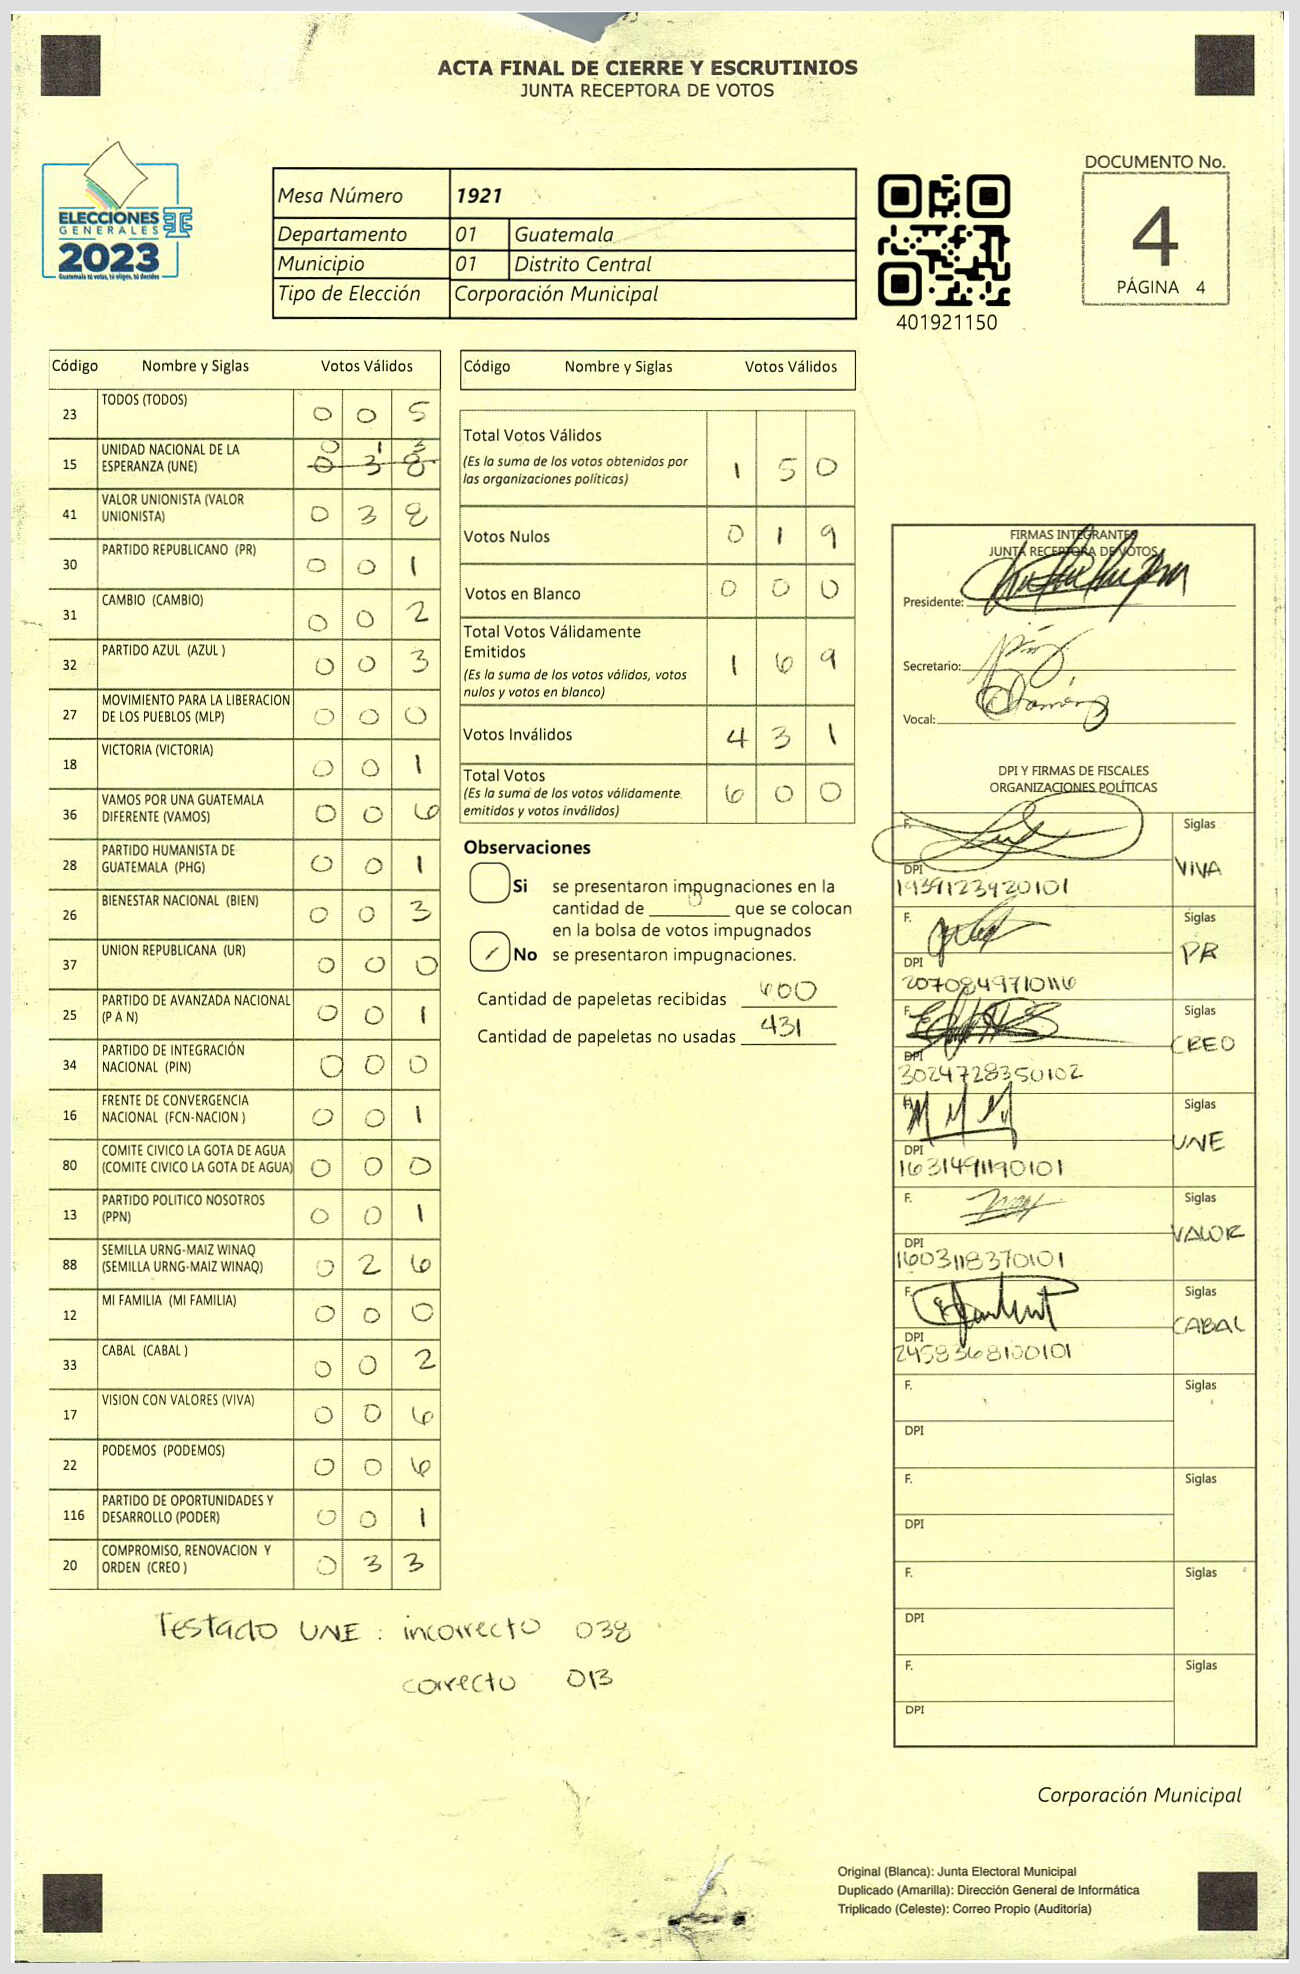 ACTA FINAL DE CIERRE Y ESCRUTINIOS
JUNTA RECEPTORA DE VOTOS
ELECCIONES
GENERALES
2023
Guatemala tú votas, tú eliges, tú decides
Mesa Número 1921
Departamento 01 Guatemala
Municipio 01 Distrito Central
Tipo de Elección Corporación Municipal
401921150
DOCUMENTO No.
4
PÁGINA 4
Código Nombre y Siglas Votos Válidos
23 TODOS (TODOS) 0 0 5
15 UNIDAD NACIONAL DE LA ESPERANZA (UNE) 0 1 3 0 3 8
41 VALOR UNIONISTA (VALOR UNIONISTA) 0 3 8
30 PARTIDO REPUBLICANO (PR) 0 0 1
31 CAMBIO (CAMBIO) 0 0 2
32 PARTIDO AZUL (AZUL ) 0 0 3
27 MOVIMIENTO PARA LA LIBERACION DE LOS PUEBLOS (MLP) 0 0 0
18 VICTORIA (VICTORIA) 0 0 1
36 VAMOS POR UNA GUATEMALA DIFERENTE (VAMOS) 0 0 6
28 PARTIDO HUMANISTA DE GUATEMALA (PHG) 0 0 1
26 BIENESTAR NACIONAL (BIEN) 0 0 3
37 UNION REPUBLICANA (UR) 0 0 0
25 PARTIDO DE AVANZADA NACIONAL (P A N) 0 0 1
34 PARTIDO DE INTEGRACIÓN NACIONAL (PIN) 0 0 0
16 FRENTE DE CONVERGENCIA NACIONAL (FCN-NACION ) 0 0 1
80 COMITE CIVICO LA GOTA DE AGUA (COMITE CIVICO LA GOTA DE AGUA) 0 0 0
13 PARTIDO POLITICO NOSOTROS (PPN) 0 0 1
88 SEMILLA URNG-MAIZ WINAQ (SEMILLA URNG-MAIZ WINAQ) 0 2 6
12 MI FAMILIA (MI FAMILIA) 0 0 0
33 CABAL (CABAL ) 0 0 2
17 VISION CON VALORES (VIVA) 0 0 6
22 PODEMOS (PODEMOS) 0 0 6
116 PARTIDO DE OPORTUNIDADES Y DESARROLLO (PODER) 0 0 1
20 COMPROMISO, RENOVACION Y ORDEN (CREO ) 0 3 3
Testado UNE : incorrecto 038
correcto 013
Código Nombre y Siglas Votos Válidos
Total Votos Válidos 1 5 0
(Es la suma de los votos obtenidos por
las organizaciones políticas)
Votos Nulos 0 1 9
Votos en Blanco 0 0 0
Total Votos Válidamente
Emitidos 1 6 9
(Es la suma de los votos válidos, votos
nulos y votos en blanco)
Votos Inválidos 4 3 1
Total Votos 6 0 0
(Es la suma de los votos válidamente
emitidos y votos inválidos)
Observaciones
Si se presentaron impugnaciones en la
cantidad de 0 que se colocan
en la bolsa de votos impugnados
No se presentaron impugnaciones.
Cantidad de papeletas recibidas 600
Cantidad de papeletas no usadas 431
FIRMAS INTEGRANTES
JUNTA RECEPTORA DE VOTOS
Presidente:
Secretario:
Vocal:
DPI Y FIRMAS DE FISCALES
ORGANIZACIONES POLÍTICAS
F. Siglas
DPI VIVA
1939123920101
F. Siglas
DPI PR
2070849710116
F. Siglas
DPI CREO
3024728350102
Siglas
DPI UNE
1631491190101
F. Siglas
DPI VALOR
1603118370101
F. Siglas
DPI CABAL
2458368100101
F. Siglas
DPI
F. Siglas
DPI
F. Siglas
DPI
F. Siglas
DPI
Corporación Municipal
Original (Blanca): Junta Electoral Municipal
Duplicado (Amarilla): Dirección General de Informática
Triplicado (Celeste): Correo Propio (Auditoría)